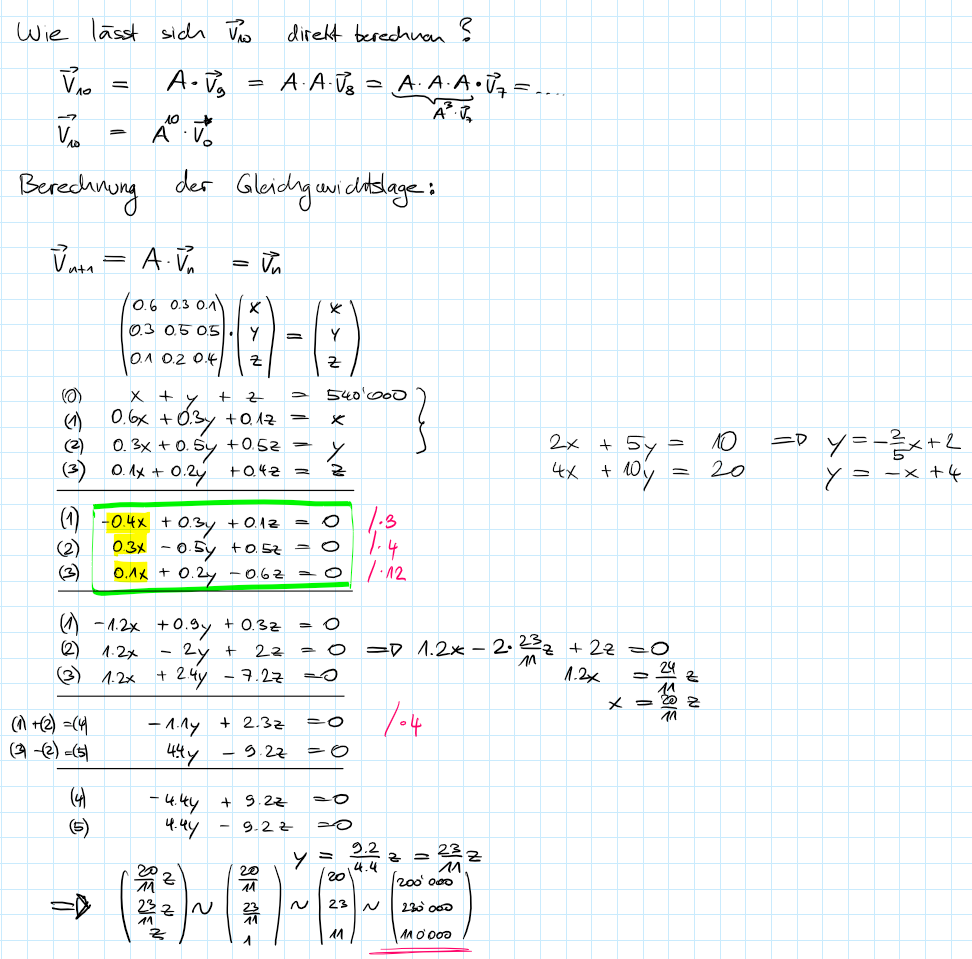 Wie lässt sich v⃗₁₀ direkt berechnen?
v⃗₁₀ = A·v⃗₉ = A·A·v⃗₈ = A·A·A·v⃗₇ = ....
A³·v⃗₇
v⃗₁₀ = A¹⁰·v⃗₀
Berechnung der Gleichgewichtslage:
v⃗ₙ₊₁ = A·v⃗ₙ = v⃗ₙ
(0.6 0.3 0.1) (x) (x)
(0.3 0.5 0.5) · (y) = (y)
(0.1 0.2 0.4) (z) (z)
(0) x + y + z = 540'000 }
(1) 0.6x + 0.3y + 0.1z = x
(2) 0.3x + 0.5y + 0.5z = y
(3) 0.1x + 0.2y + 0.4z = z
2x + 5y = 10 => y = -2/5x + 2
4x + 10y = 20 y = -x + 4
(1) -0.4x + 0.3y + 0.1z = 0 /·3
(2) 0.3x - 0.5y + 0.5z = 0 /·4
(3) 0.1x + 0.2y - 0.6z = 0 /·12
(1) -1.2x + 0.9y + 0.3z = 0
(2) 1.2x - 2y + 2z = 0 => 1.2x - 2·23/11z + 2z = 0
(3) 1.2x + 2.4y - 7.2z = 0
1.2x = 24/11 z
x = 20/11 z
(1)+(2)=(4) -1.1y + 2.3z = 0 /·4
(3)-(2)=(5) 4.4y - 9.2z = 0
(4) -4.4y + 9.2z = 0
(5) 4.4y - 9.2z = 0
y = 9.2/4.4 z = 23/11 z
=> (20/11 z) (20/11) (20) (200'000)
(23/11 z) ~ (23/11) ~ (23) ~ (230'000)
(z) (1) (11) (110'000)